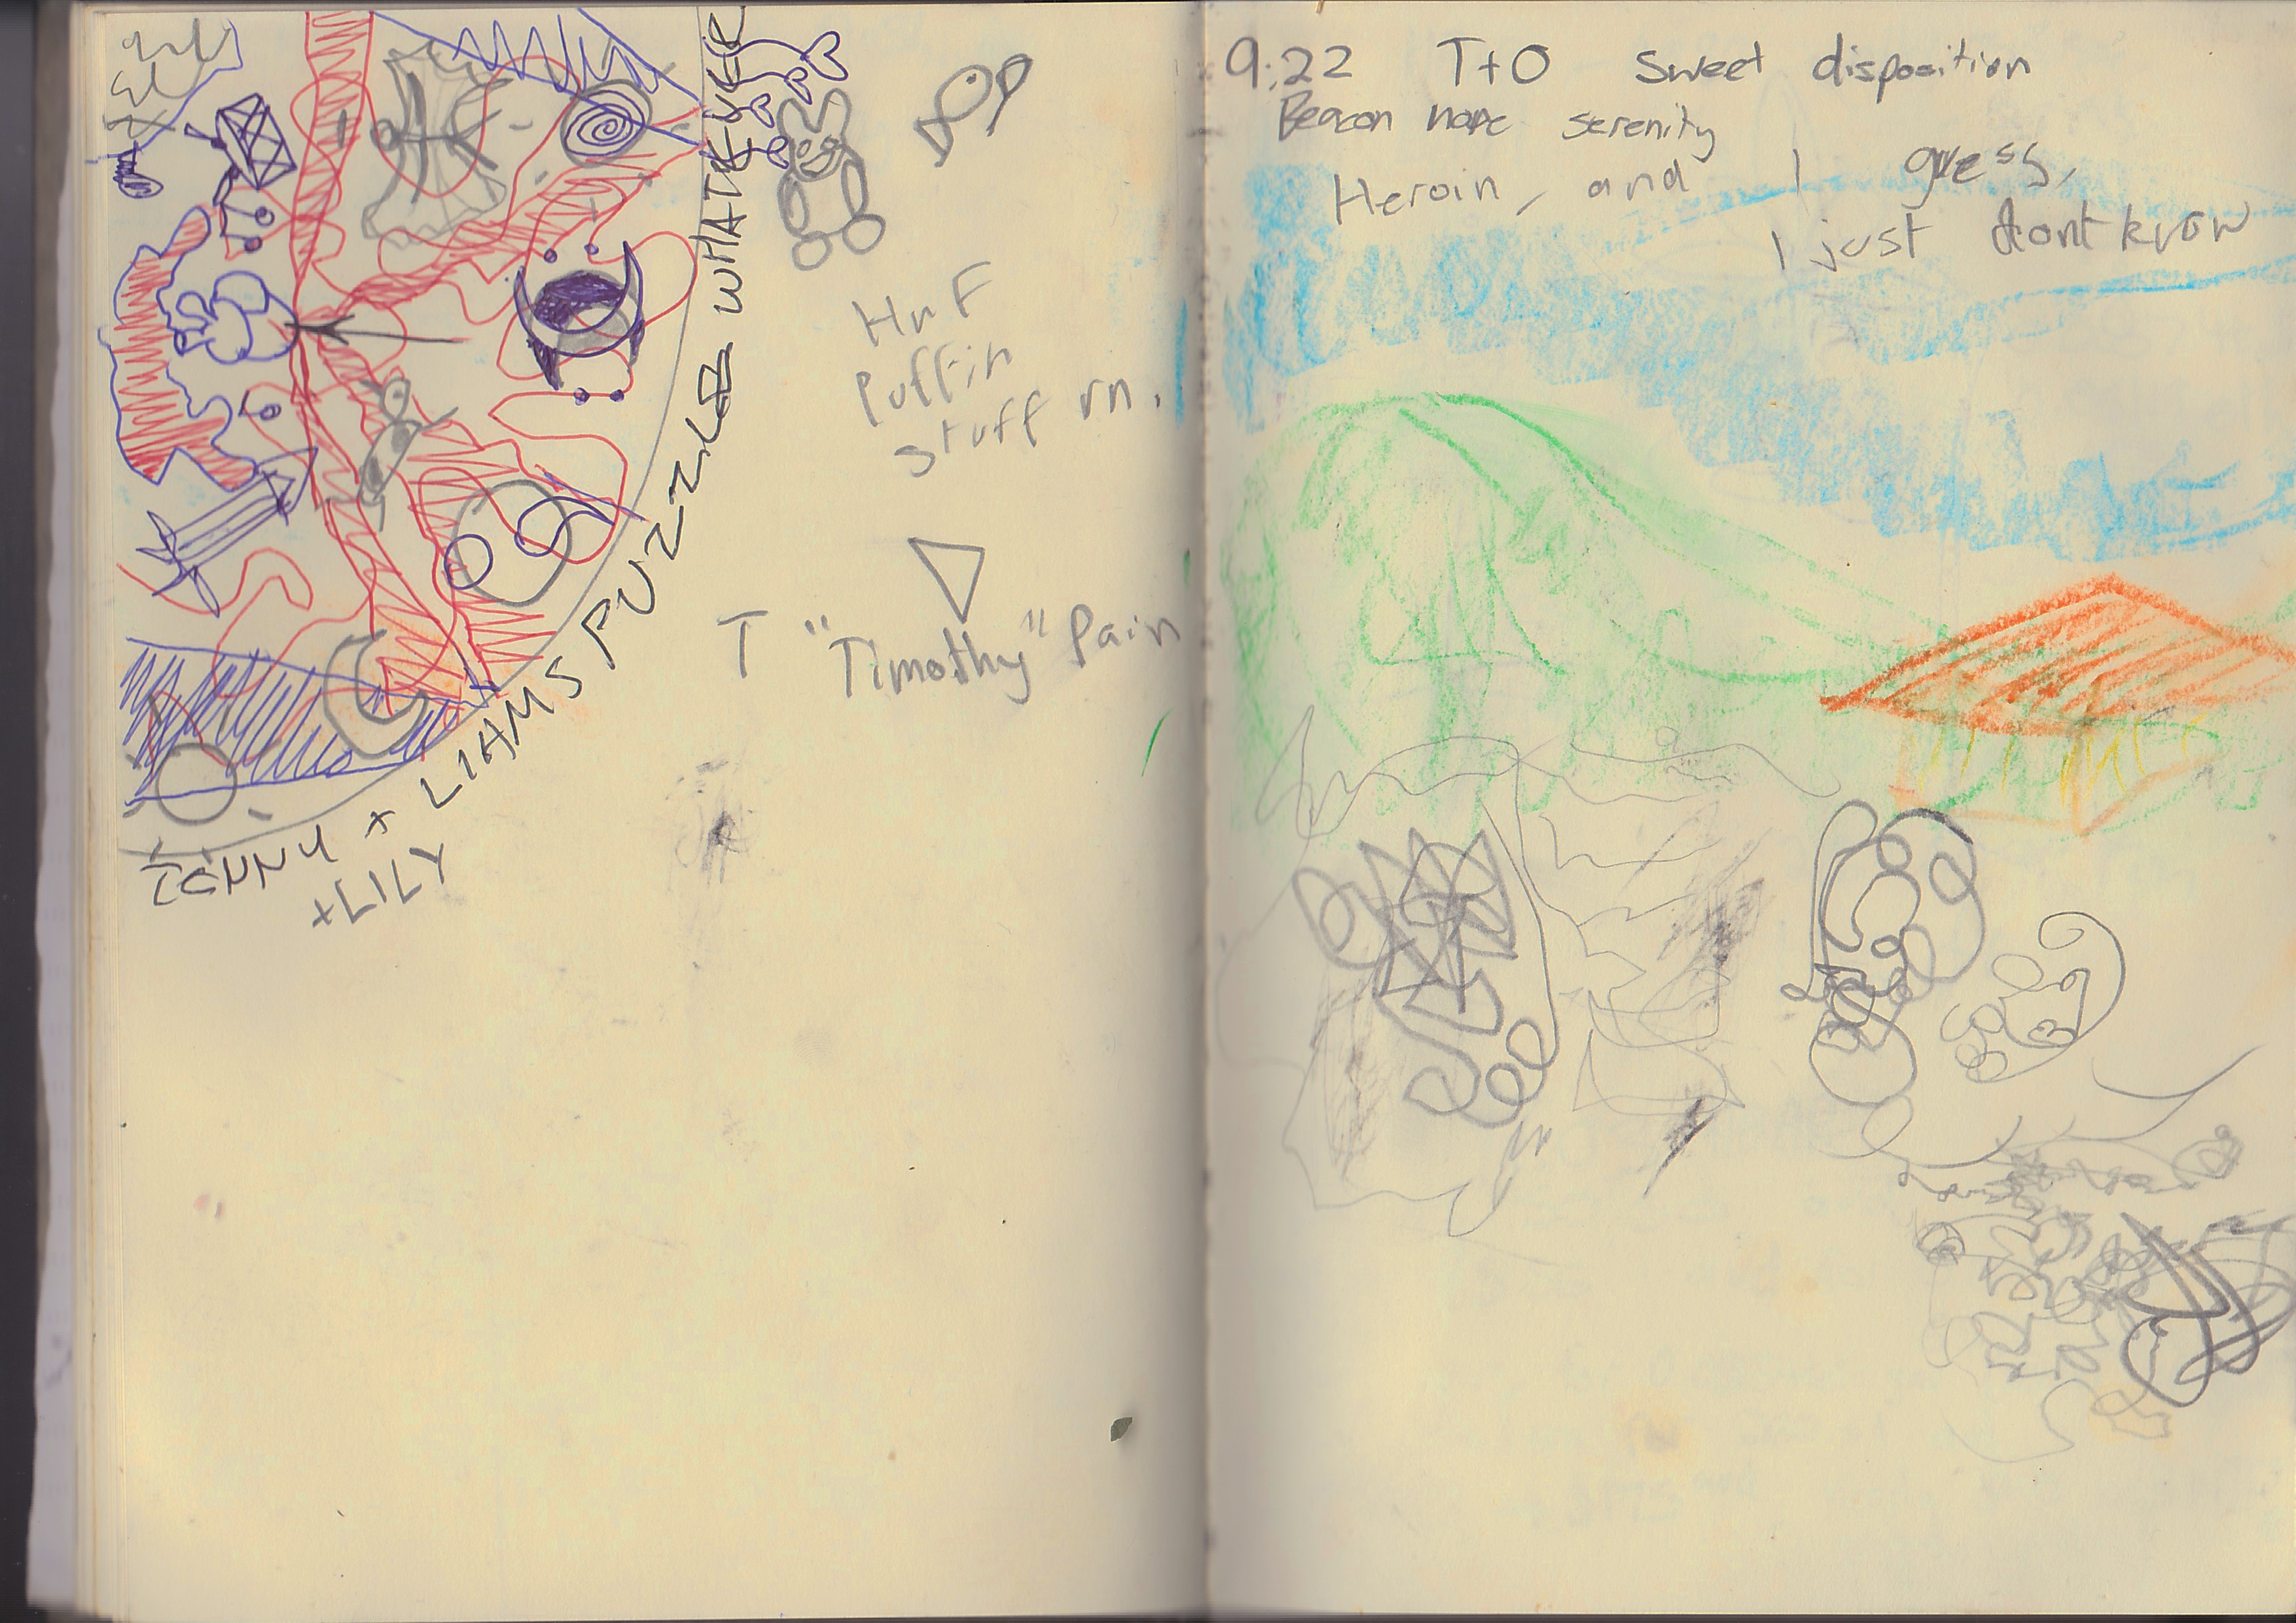 JENNY + LIAMS PUZZLE WHATEVER
+LILY
HnF
Puffin
stuff rn.
T "Timothy" Pain
9:22 T+O Sweet disposition
Beacon hope serenity
Heroin, and I guess,
I just dont know